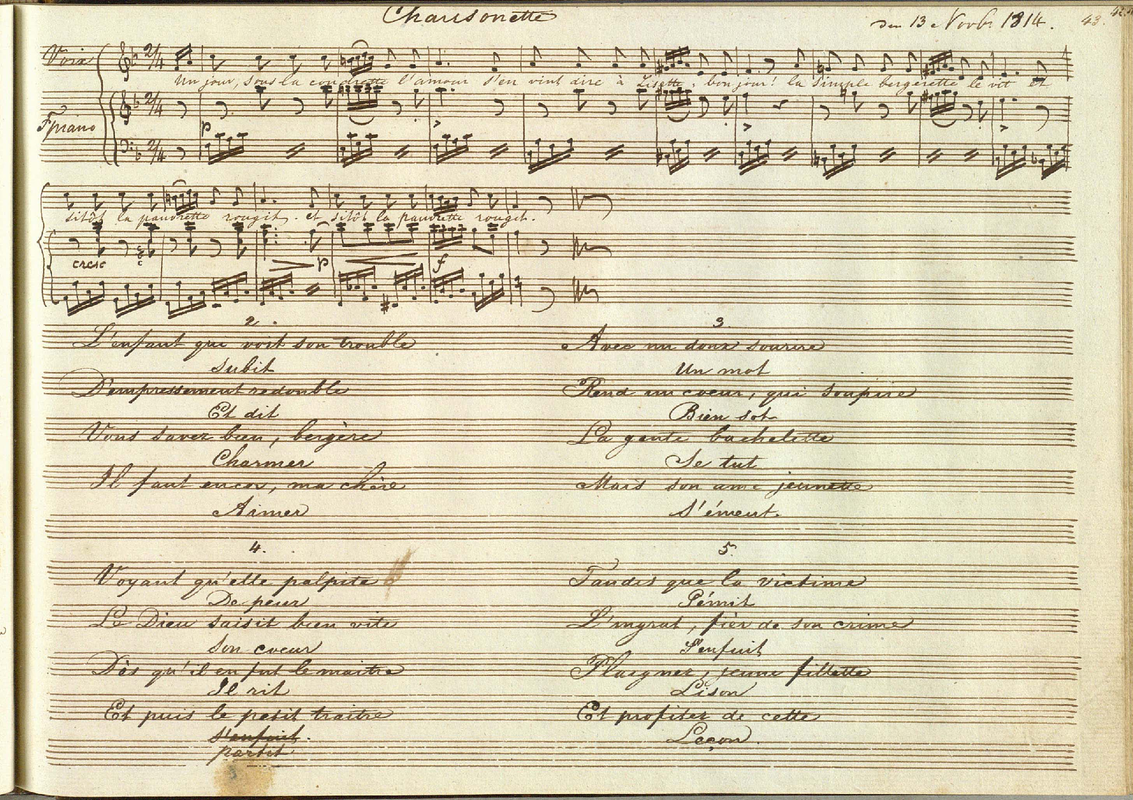 Chansonette
den 13 Novbr 1814. 43.
Voix
Un jour, sous la coudrette l'amour s'en vint dire à Lisette, bonjour! la simple bergerette le vit et
Fpiano
p
sitôt la pauvrette rougit. et sitôt la pauvrette rougit.
cresc p f
2.
L'enfant qui voit son trouble
Subit
D'empressement redouble
Et dit
Vous savez bien, bergère
Charmer
Il faut encor, ma chère
Aimer
3
Avec un doux sourire
Un mot
Rend un coeur, qui soupire
Bien sot
La gente bachelette
Se tut
Mais son ame jeunette
S'émeut.
4.
Voyant qu'elle palpite
De peur
Le Dieu saisit bien vite
Son coeur
Dès qu'il en fut le maitre
Il rit
Et puis le petit traitre
s'enfuit.
partit
5.
Tandis que la victime
Gémit
L'ingrat, fier de son crime
S'enfuit
Plaignez, jeune fillette
Lison
Et profitez de cette
Leçon.